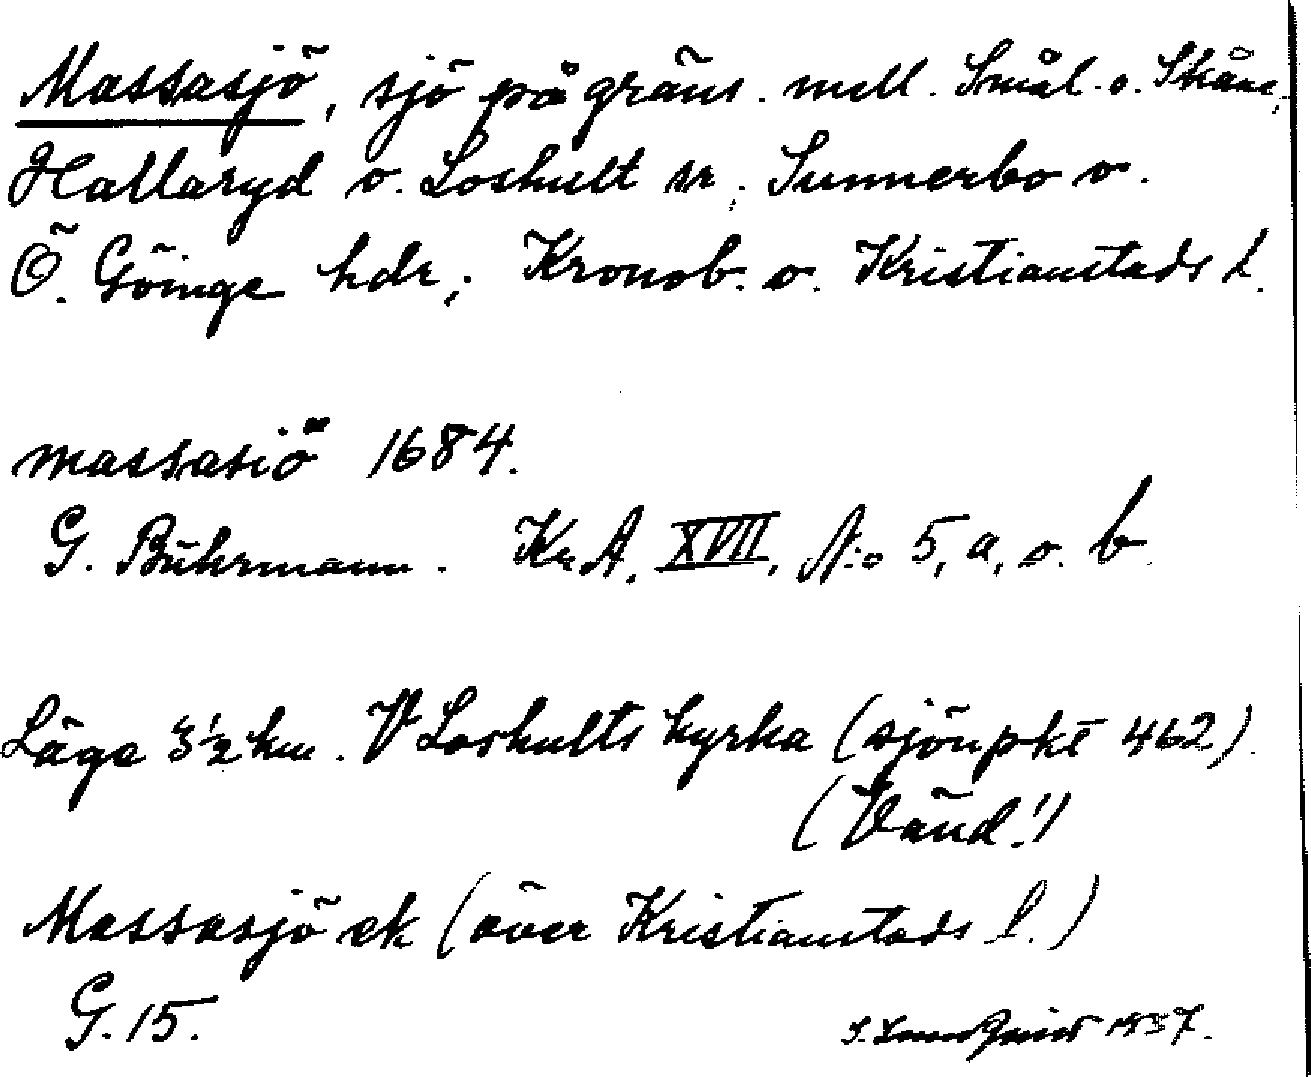 Massasjö, sjö på gräns. mell. Smål. o. Skåne,
Hallaryd o. Loshult sr; Sunnerbo o.
Ö. Göinge hdr; Kronob. o. Kristianstads l.
massasiö 1684.
G. Bührmann. Kr.A. XVII, N:o 5, a, o. b
Läge 3½ km. V Loshults kyrka (sjönpkt 462).
(Vänd!)
Massasjö ek (över Kristianstads l.)
G. 15.
1937.